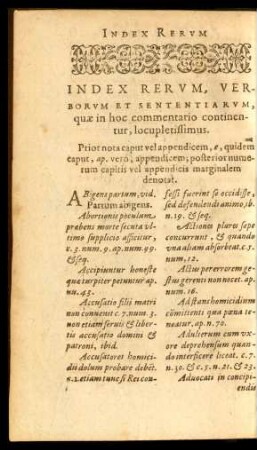 INDEX RERVM
INDEX RERVM, VER-
BORVM ET SENTENTIARVM,
quæ in hoc commentario continen-
tur, locupletissimus.
Prior nota caput vel appendicem, c, quidem
caput, ap. verò, appendicem, posterior nume-
rum capitis vel appendicis marginalem
denotat.
ABigens partum, vid.
Partum abigens.
Abortionis poculum
præbens morte secuta vl-
timo supplicio afficitur,
c. 3. num. 9. ap. num. 49.
& seq.
Accipiuntur honeste
quæ turpiter petuntur ap.
nu. 45.
Accusatio filij matri
non conuenit c. 7. num. 3.
non etiam seruis & liber-
tis accusatio domini &
patroni, ibid.
Accusatores homici-
dij dolum probare debēt.
c. 2 etiam tunc si Rei con-
fessi fuerint se occidisse,
sed defendendi animo, ib.
n. 19. & seq.
Actiones plures sæpe
concurrunt, & quando
vna aliam absorbeat. c. 1.
num, 12.
Actus per errorem ge-
stus gerenti non nocet. ap.
num. 16.
Adstans homicidium
committenti qua pœna te-
neatur, ap. n. 70.
Adulterum cum vx-
ore deprehensum quan-
do interficere liceat. c. 7.
n. 30. & c. 5. n. 21. & 23.
Aduocati in concipi-
endis